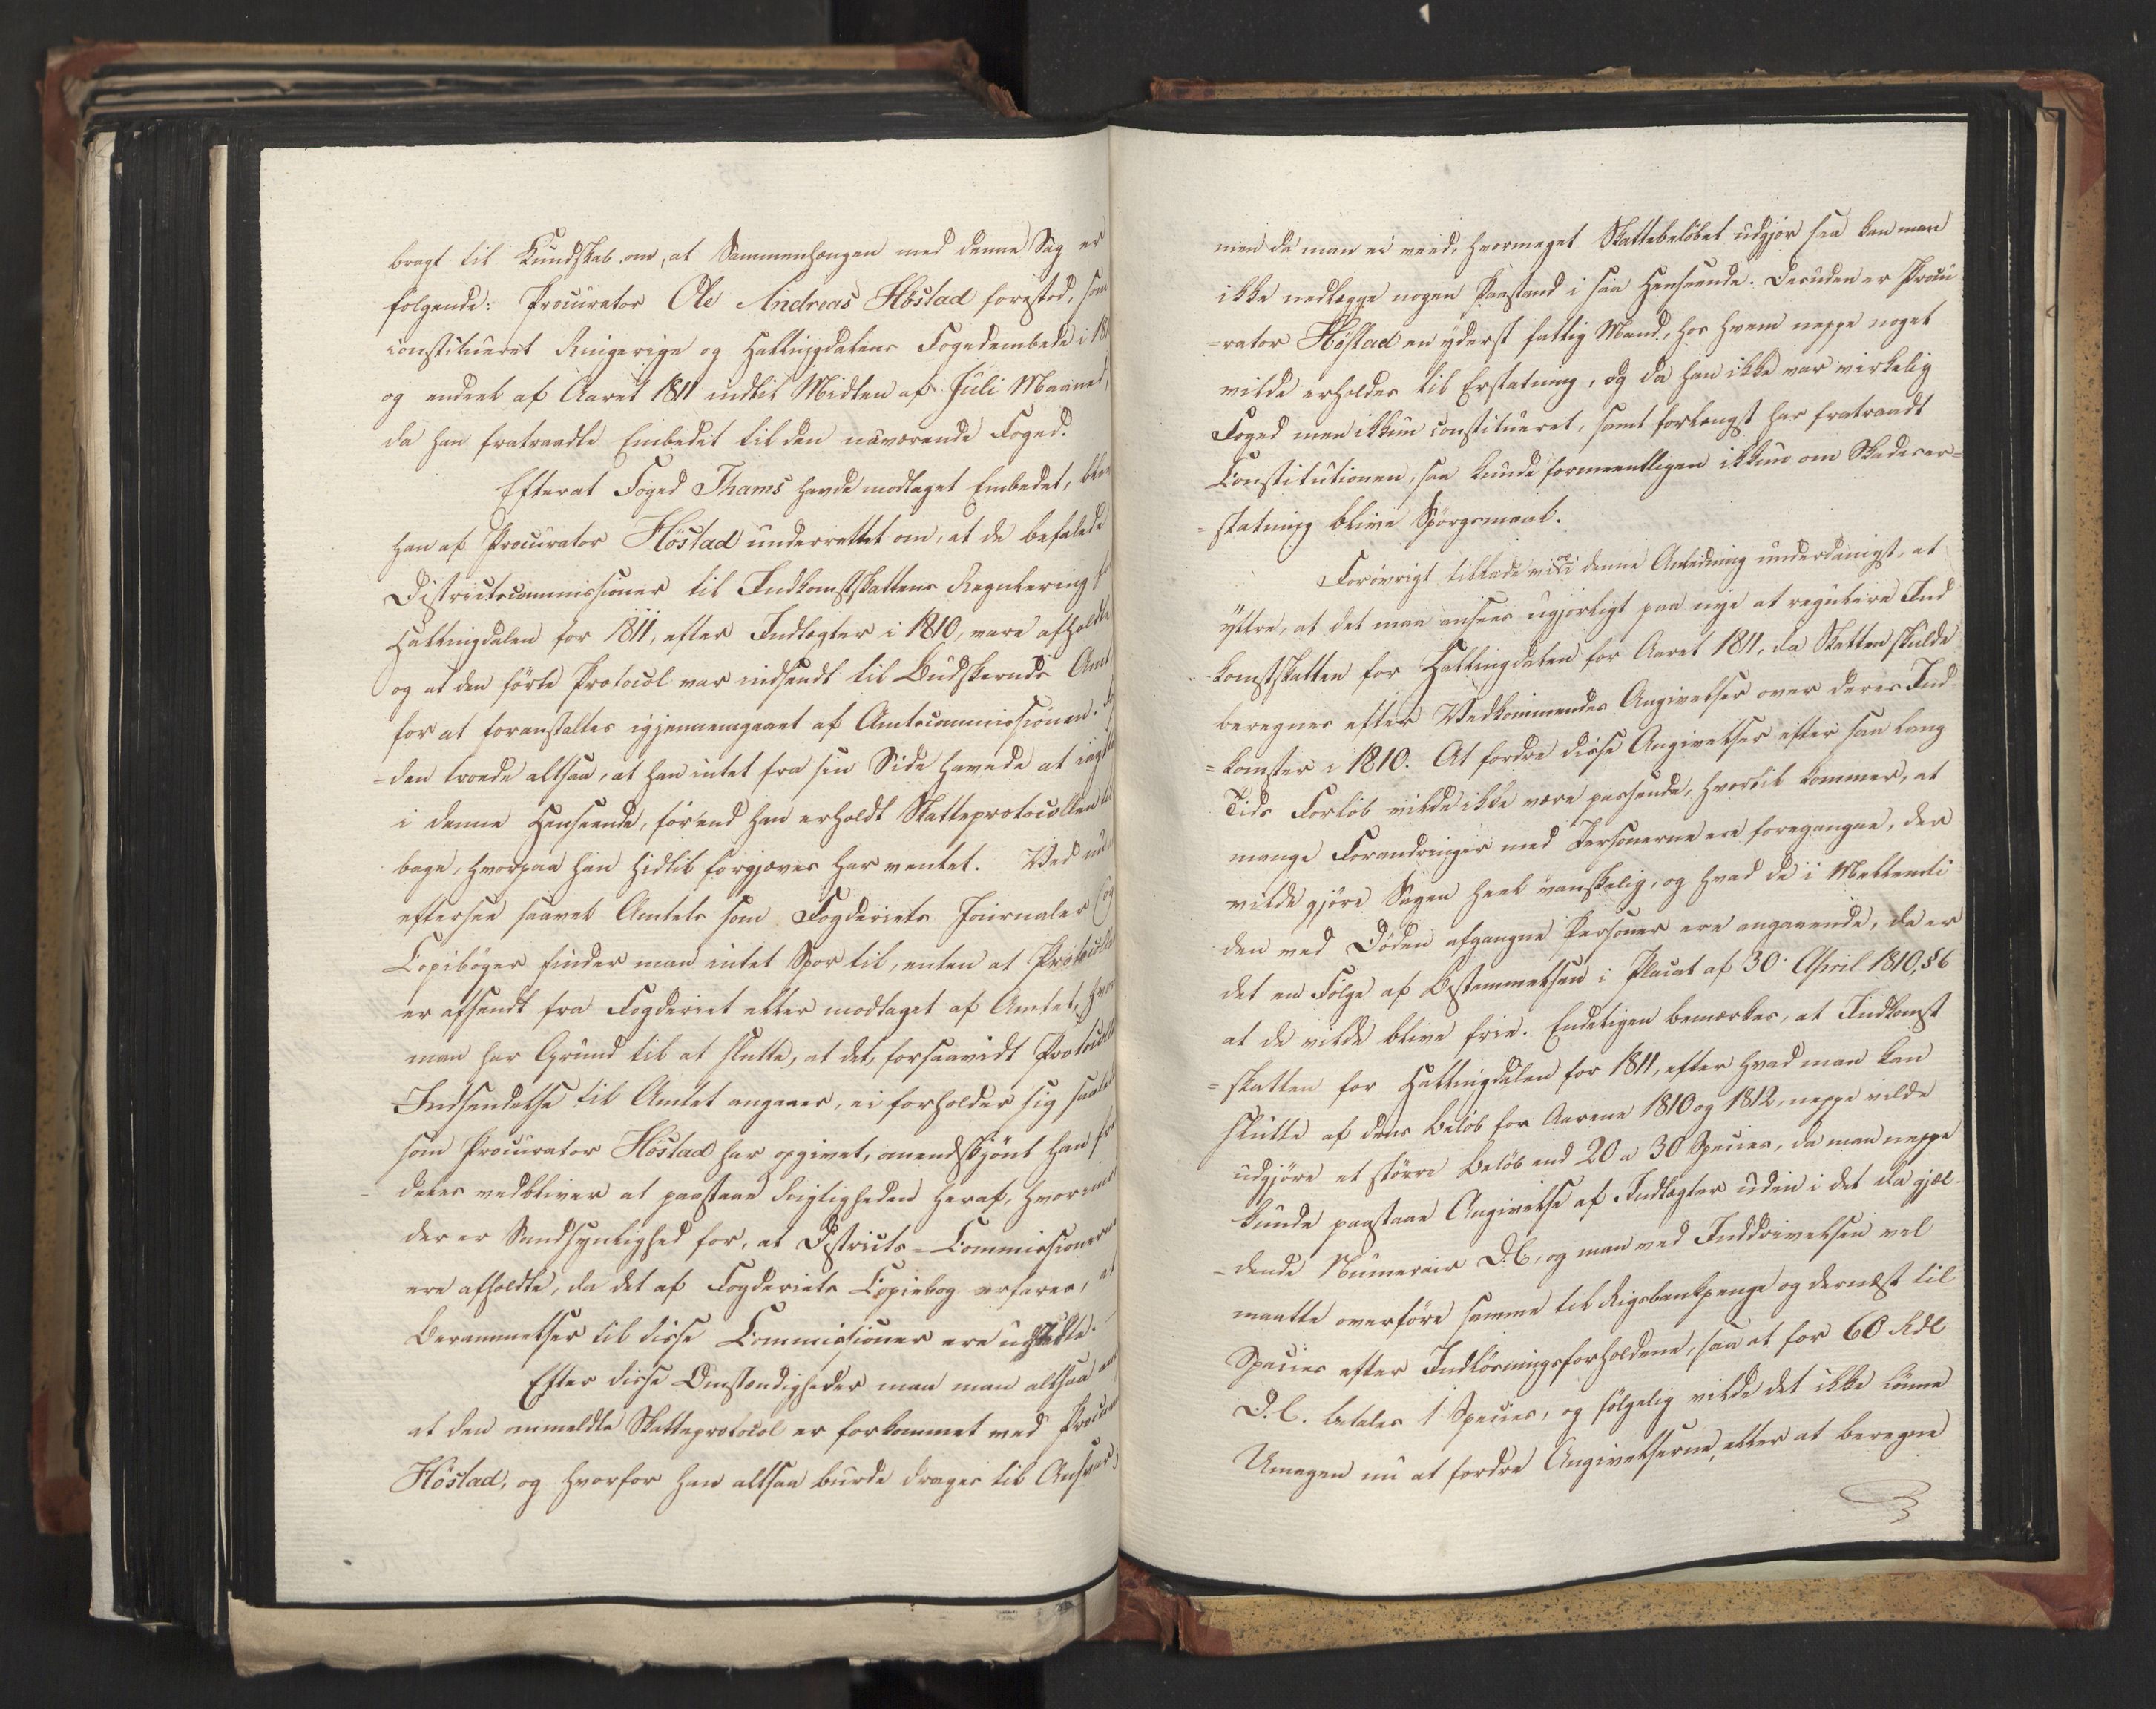 bragt til Kundskab om, at Sammenhængen med denne Sag er
følgende: Procurator Ole Andreas Höstad forestod, som
constitueret Ringerige og Hallingdalens Fogedembede i 18
og endeel af Aaret 1811 indtil Midten af Juli Maaned,
da han fratraadte Embedet til den nuværende Foged.
Efterat Foged Thams havde modtaget Embedet, blev
han af Procurator Höstad underrettet om, at de befalede
Districtscommissioner til Indkomstskattens Regulering f
Hallingdalen for 1811, efter Indtægter i 1810, vare afholdte
og at den förte Protocol var indsendt til Budskeruds Amt
for at foranstaltes igjennemgaaet af Amtscommissionen.
=den troede altsaa, at han intet fra sin Side havde at
i denne Henseende, förend han erholdt Skatteprotocollen til
bage, hvorpaa han hidtil forgjæves har ventet. Ved
eftersee saavel Amtets som Fogderiets Journaler og
Copibøger finder man intet Spor til, enten at Protocolle
er afsendt fra Fogderiet eller modtaget af Amtet, hvor
man har Grund til at slutte, at det, forsaavidt Protocolle
Indsendelse til Amtet angaaer, ei forholder sig saale
som Procurator Höstad har opgivet, omendskjönt han fr
deles vedbliver at paastaae Rigtigheden heraf, hvorimod
der er Sandsynlighed for, at Districts=Commissionerne
ere afholdte, da det af Fogderiets Copiebog erfares, at
Berammelser til disse Commissioner ere udstædte.
Efter disse Omstændigheder maa man altsaa an
at den anmeldte Skatteprotocol er forkommet ved Procur
Höstad, og hvorfor han altsaa burde drages til Ansvar;
men da man ei veed, hvormeget Skattebelöbet udgjør saa kan man
ikke nedlægge nogen Paastand i saa Henseende. Desuden er Procu
=rator Höstad en yderst fattig Mand, hos hvem neppe noget
vilde erholdes til Erstatning, og da han ikke var virkelig
Foged men ikkun constitueret, samt forlængst har fratraadt
Constitutionen, saa kunde formeentligen ikkun om Skadeser=
=statning blive Spörgsmaal.
Forövrigt tillade vi os i denne Anledning underdanigst, at
yttre, at det maa ansees ugjörligt paa nye at regulere Ind
komstskatten for Hallingdalen for Aaret 1811, da Skatten skulde
beregnes efter Vedkommendes Angivelser over deres Ind=
=komster i 1810. At fordre disse Angivelser efter saa lang
Tids Forlöb vilde ikke være passende, hvortil kommer, at
mange Forandringer med Personerne ere foregangne, der
vilde gjöre Sagen heel vanskelig, og hvad de i Mellemti
den ved Döden afgangne Personer ere angaaende, da er
det en Fölge af Bestemmelsen i Placat af 30. April 1810, § 6
at de vilde blive frie. Endeligen bemærkes, at Indkomst
=skatten for Hallingdalen for 1811, efter hvad man kan
slutte af dens Belöb for Aarene 1810 og 1812, neppe vilde
udgjöre et större Belöb end 20 a 30 Species, da man neppe
kunde paastaae Angivelse af Indtægter uden i det da gjæl=
=dende Numerair D.C, og man ved Inddrivelsen vel
maatte overföre samme til Rigsbankpenge og dernæst til
Species efter Indlösningsforholdene, saa at for 60 Rdl
D.C. betales 1 Species, og fölgelig vilde det ikke lönne
Umagen nu at fordre Angivelserne, eller at beregne